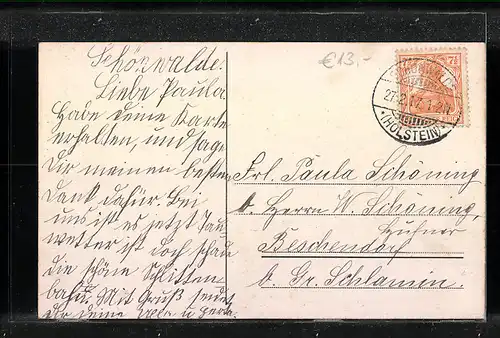 Schönwalde.
Liebe Paula
Habe deine Karte
erhalten, und sage
dir meinen besten
Dank dafür. Bei
uns ist es jetzt Tau-
wetter ist doch schade
die schöne Schlitten
bahn. Mit Gruß sendet
dir deine
€13,-
7½
27.2.17. 1-2N
*(HOLSTEIN)
Frl. Paula Schöning
b. Herrn W. Schöning,
Hufner
Beschendorf
b. Gr. Schlamin.